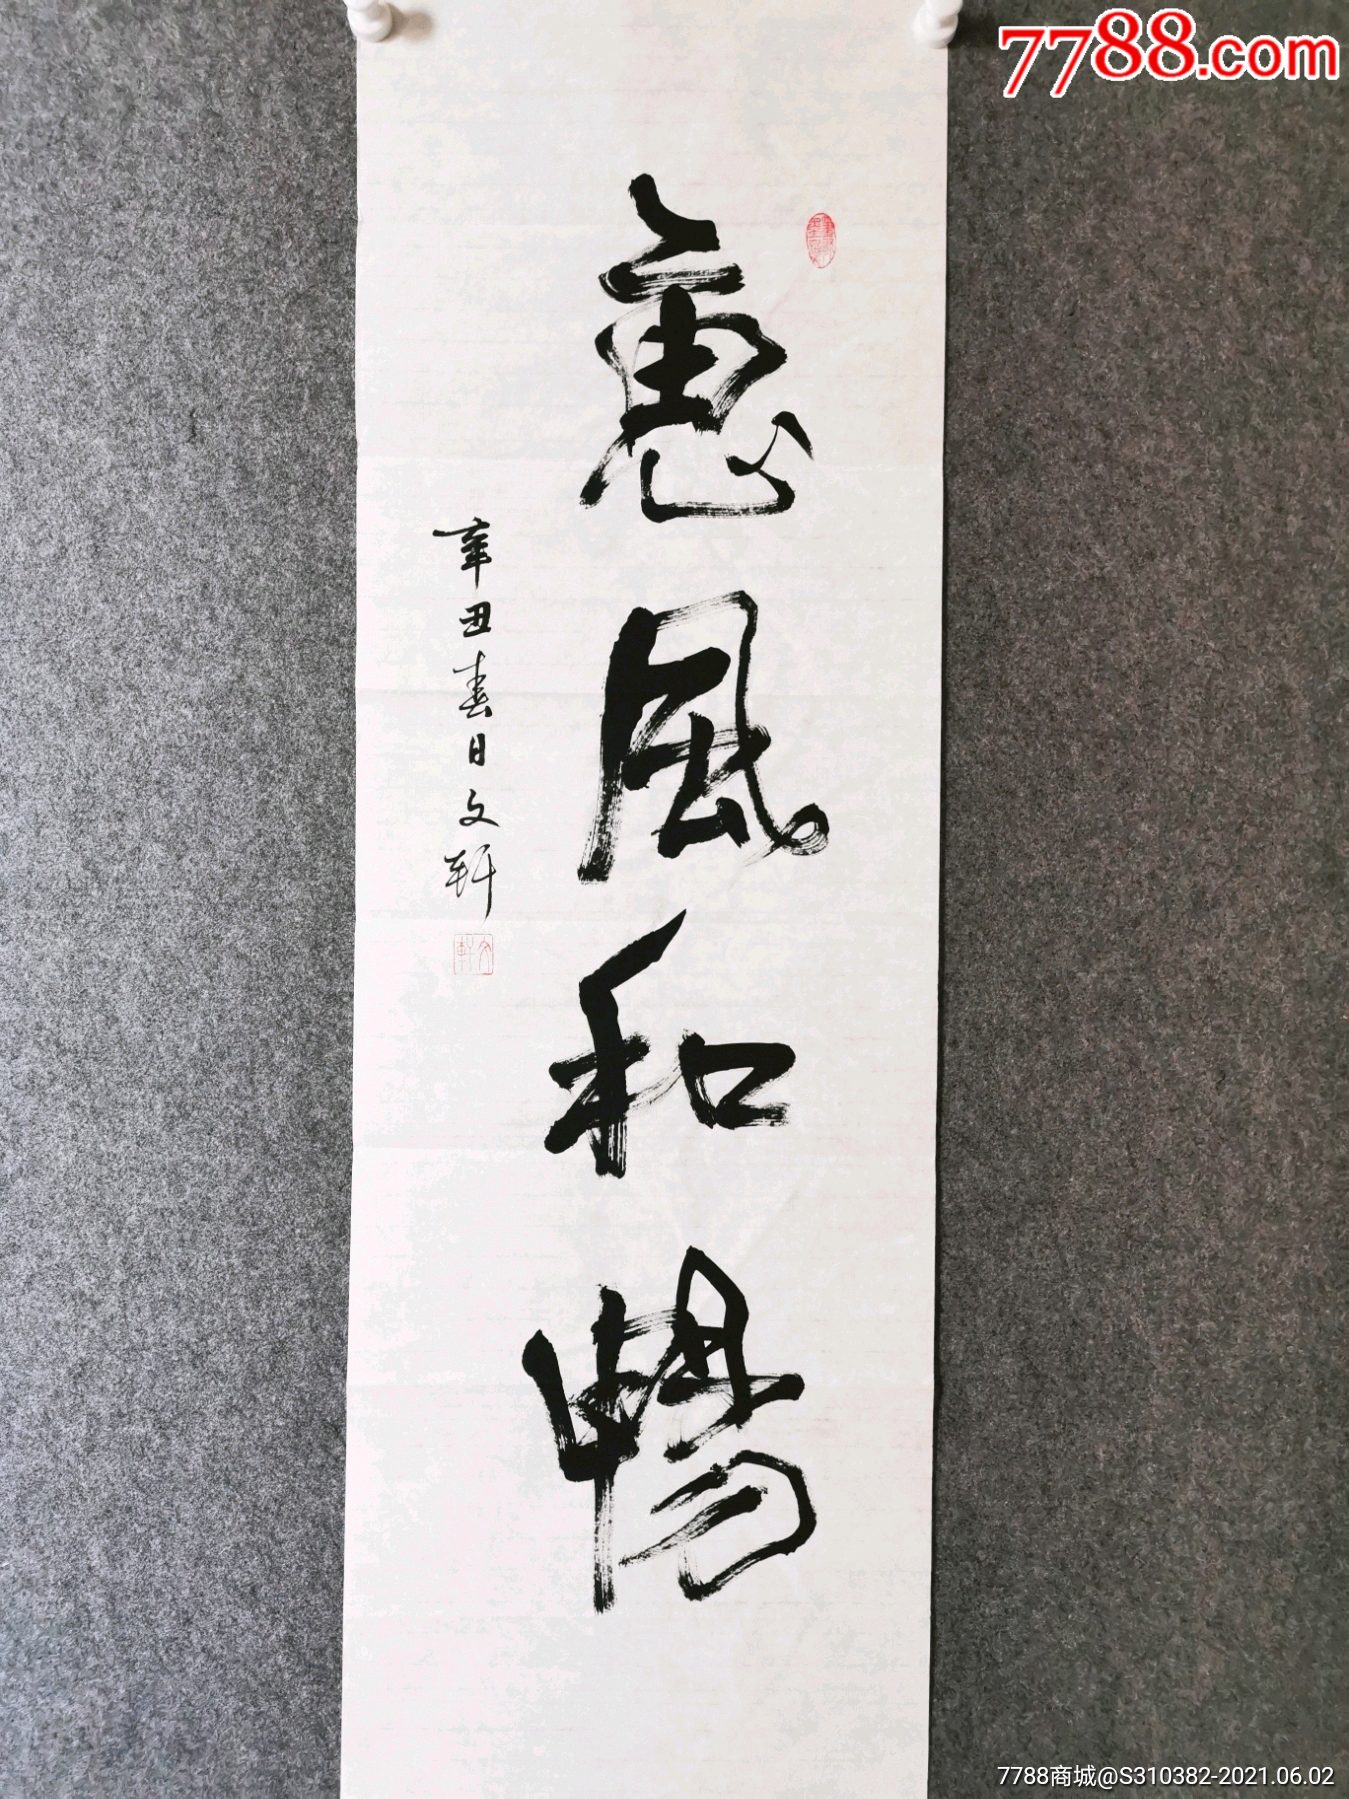 7788.com
惠風和暢
辛丑春日文軒
文軒
7788商城@S310382-2021.06.02